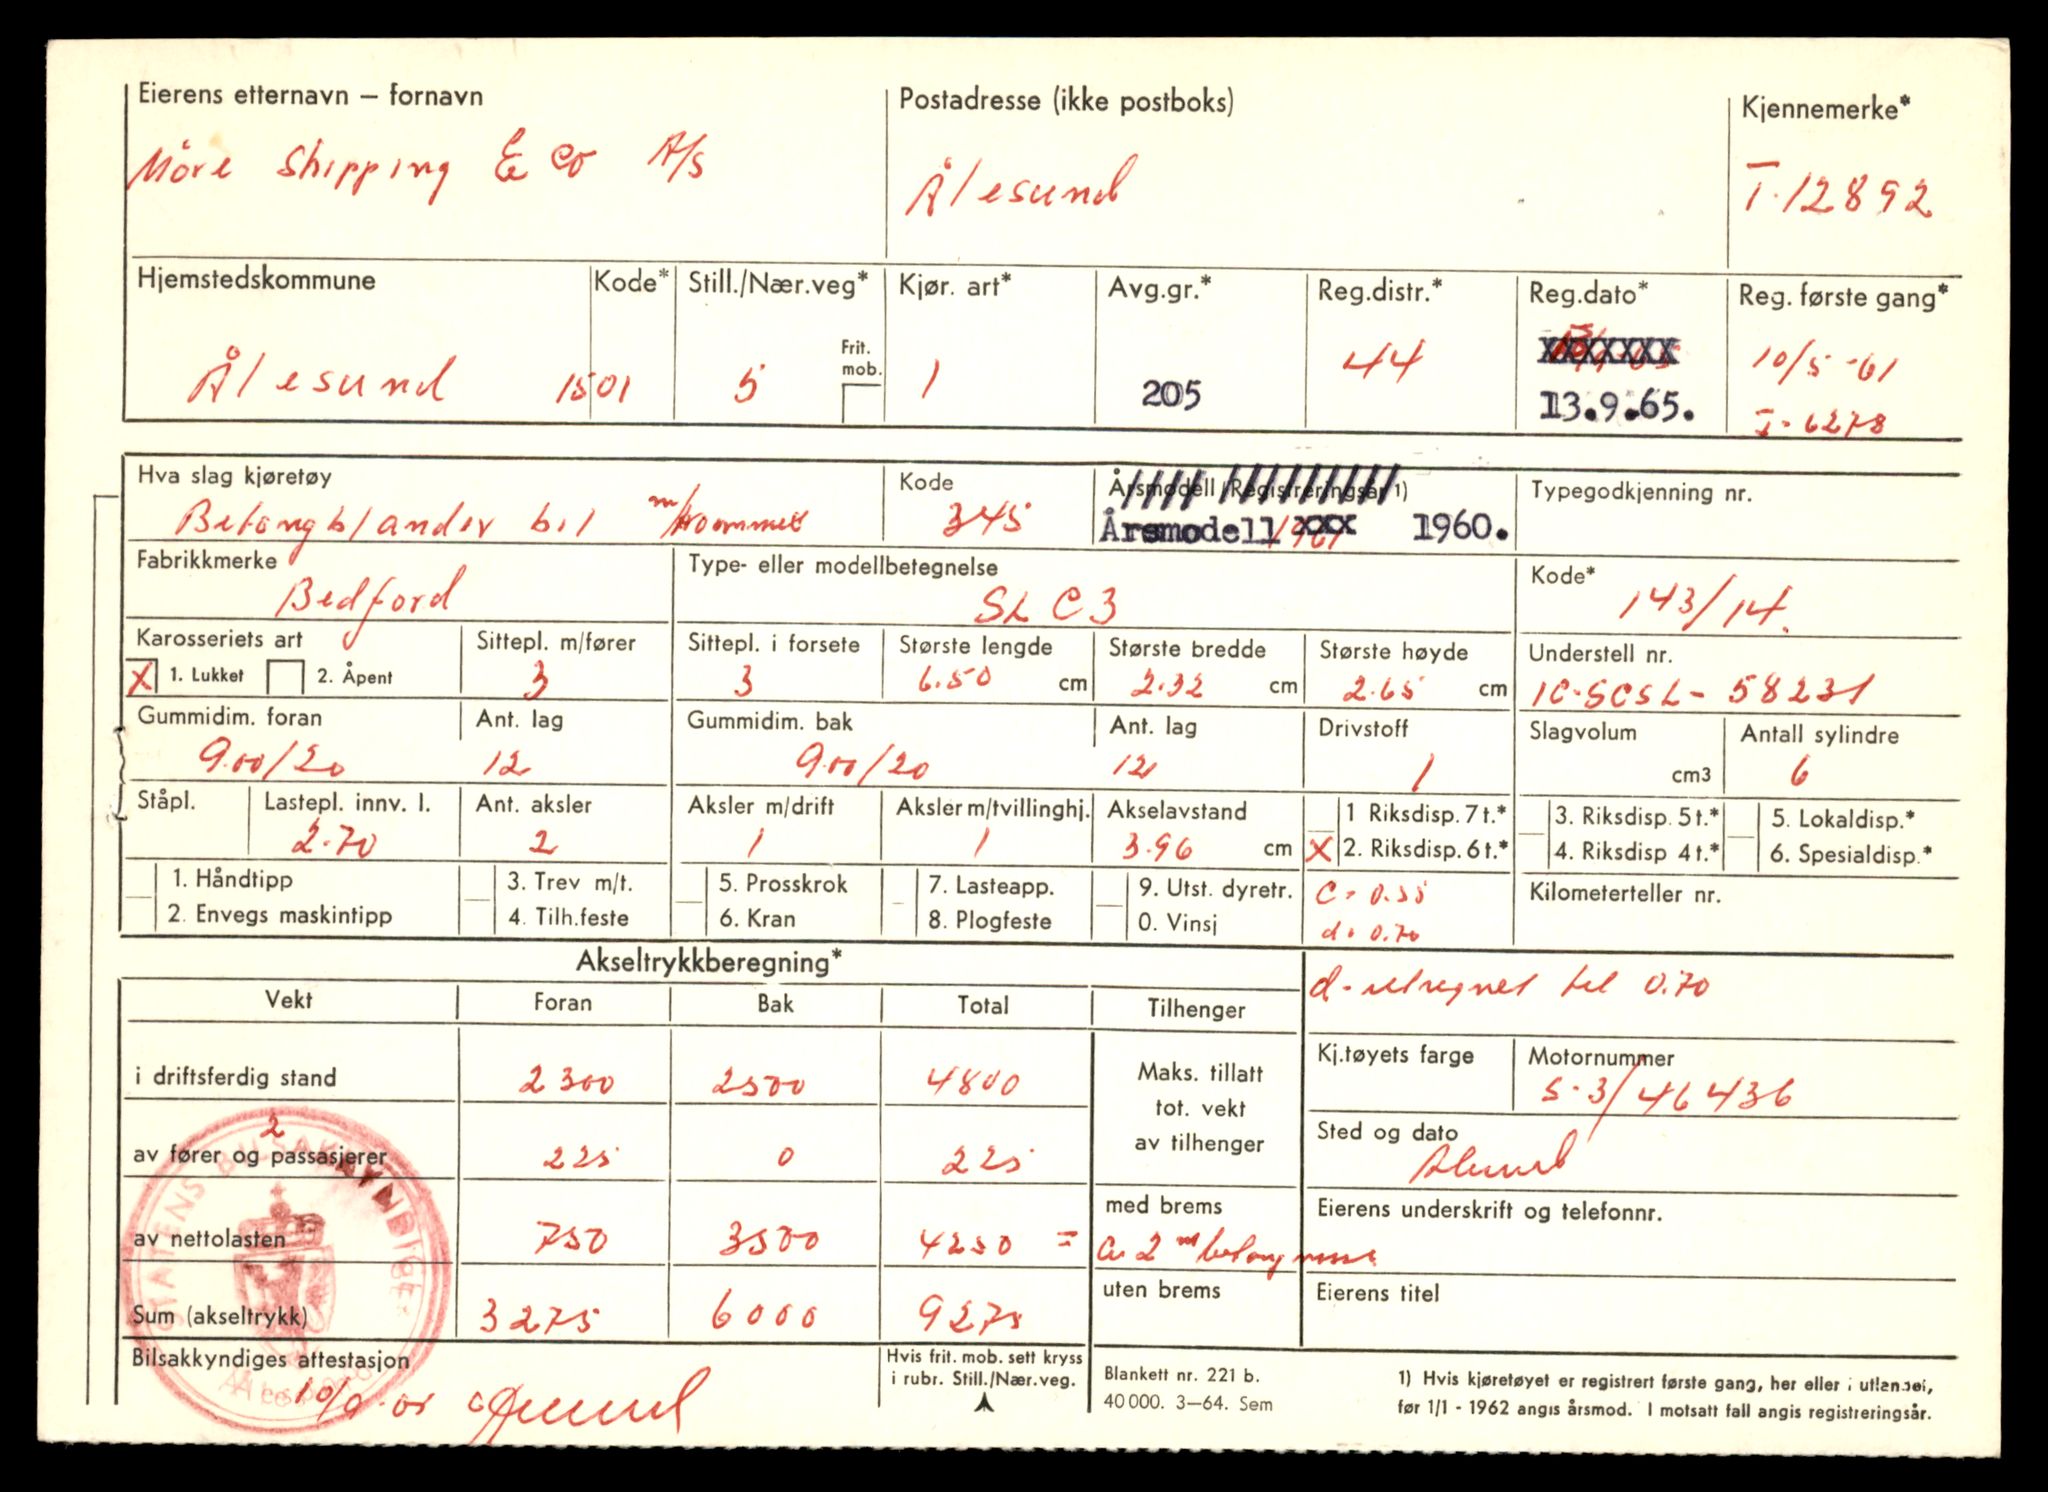 Eierens etternavn – fornavn Postadresse (ikke postboks) Kjennemerke*
Möre Shipping & Co A/S Ålesund T-12892
Hjemstedskommune Kode* Still./Nær.veg* Kjør. art* Avg.gr.* Reg.distr.* Reg.dato* Reg. første gang*
Ålesund 1501 5 Frit. mob. 1 205 44 13.9.65. 10/5-61
T-6278
Hva slag kjøretøy Kode Årsmodell/Registreringsår 1) Typegodkjenning nr.
Betongblander bil m/trommel 345 Årsmodell xxx 1960.
Fabrikkmerke Type- eller modellbetegnelse Kode*
Bedford SL C3 143/14.
Karosseriets art Sittepl. m/fører Sittepl. i forsete Største lengde Største bredde Største høyde Understell nr.
X 1. Lukket 2. Åpent 3 3 6.50 cm 2.32 cm 2.65 cm 1C-SCSL-58231
Gummidim. foran Ant. lag Gummidim. bak Ant. lag Drivstoff Slagvolum Antall sylindre
9.00/20 12 9.00/20 12 1 cm3 6
Ståpl. Lastepl. innv. l. Ant. aksler Aksler m/drift Aksler m/tvillinghj. Akselavstand 1 Riksdisp. 7 t.* 3. Riksdisp. 5 t.* 5. Lokaldisp.*
2.70 2 1 1 3.96 cm X 2. Riksdisp. 6 t.* 4. Riksdisp 4 t.* 6. Spesialdisp.*
1. Håndtipp 3. Trev m/t. 5. Prosskrok 7. Lasteapp. 9. Utst. dyretr. C = 0.55 Kilometerteller nr.
2. Envegs maskintipp 4. Tilh.feste 6. Kran 8. Plogfeste 0. Vinsj d = 0.70
Akseltrykkberegning*
d- utregnet til 0.70
Vekt Foran Bak Total Tilhenger
Kj.tøyets farge Motornummer
i driftsferdig stand 2300 2500 4800 Maks. tillatt tot. vekt av tilhenger
S-3/46436
2
av fører og passasjerer 225 0 225
Sted og dato
med brems Eierens underskrift og telefonnr.
av nettolasten 750 3500 4250 =
uten brems Eierens titel
Sum (akseltrykk) 3275 6000 9275
STATENS BILSAKKYNDIGE
Bilsakkyndiges attestasjon Hvis frit. mob. sett kryss i rubr. Still./Nær.veg.
Blankett nr. 221 b.
40 000. 3–64. Sem
1) Hvis kjøretøyet er registrert første gang, her eller i utlandet,
før 1/1 - 1962 angis årsmod. I motsatt fall angis registreringsår.